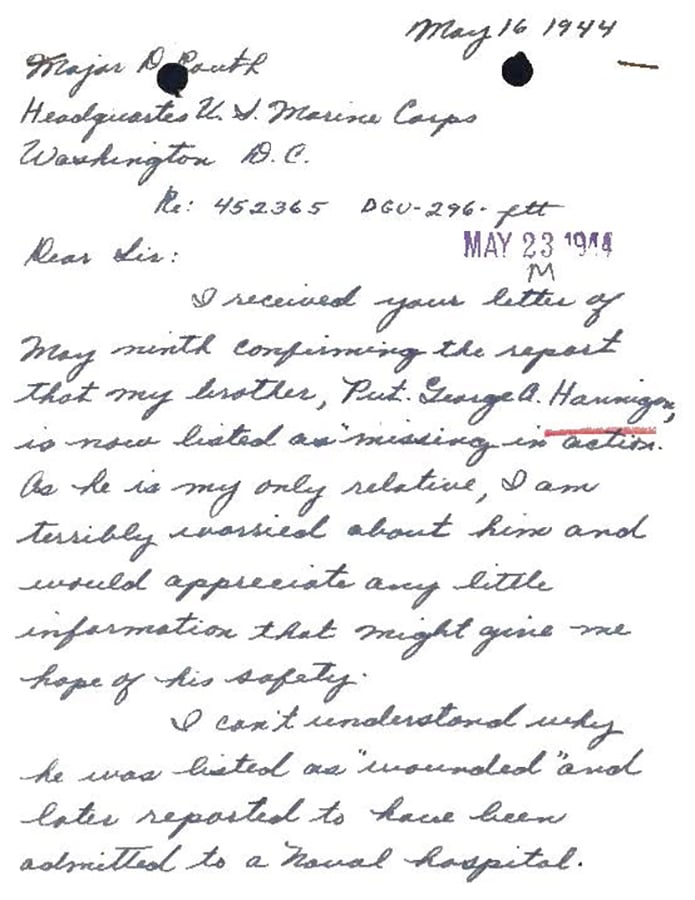 May 16 1944
Major D. Routh
Headquartes U. S. Marine Corps
Washington D.C.
Re: 452365 DGU-296-ptt
MAY 23 1944
M
Dear Sir:
I received your letter of
May ninth confirming the report
that my brother, Pvt. George A. Hannigan,
is now listed as "missing in action.
As he is my only relative, I am
terribly worried about him and
would appreciate any little
information that might give me
hope of his safety.
I can't understand why
he was listed as "wounded" and
later reported to have been
admitted to a Naval hospital.